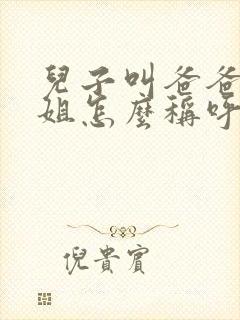 兒子叫爸爸
姐怎麼稱呼
倪貴賓